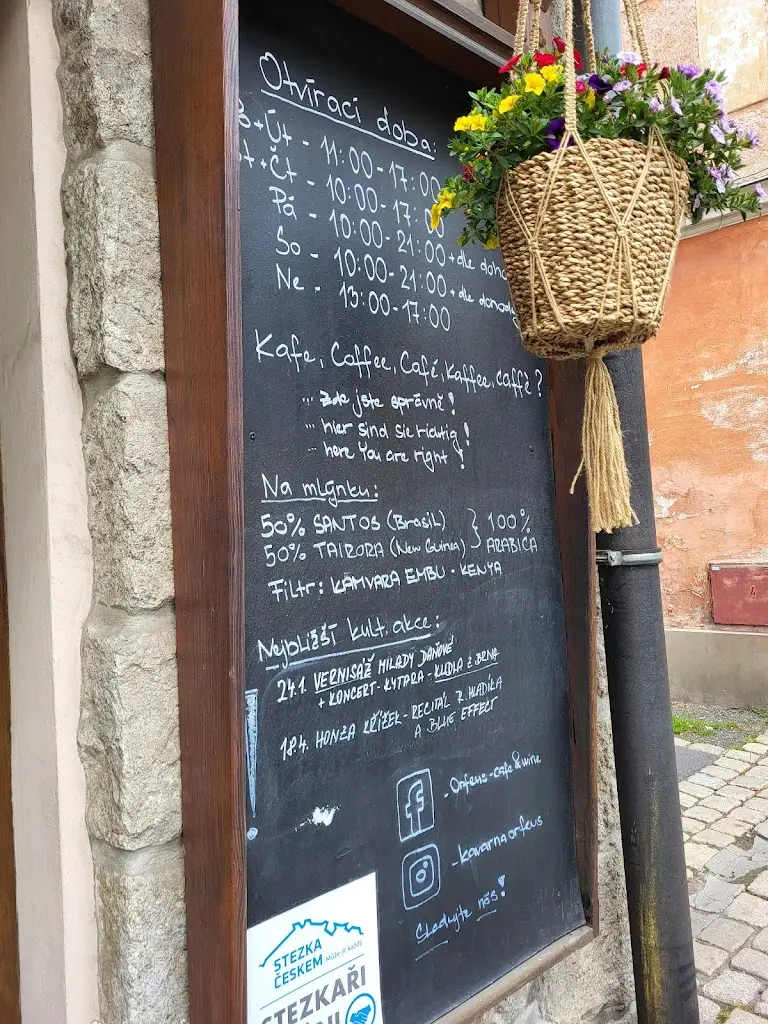 Otvírací doba:
+Út - 11:00-17:00
+Čt - 10:00-17:00
Pá - 10:00-21:00 + dle
So - 10:00-21:00 + dle dohody
Ne - 13:00-17:00
Kafe, Coffee, Café, Kaffee, caffè?
... zde jste správně!
... hier sind sie richtig!
... here You are right!
Na mlýnku:
50% SANTOS (Brasil) } 100%
50% TAIRORA (New Guinea) ARABICA
Filtr: KAMVARA EMBU - KENYA
Nejbližší kult. akce:
24.1. VERNISÁŽ MILADY DAŇOVÉ
+ KONCERT - KYTARA - KUDLA Z BRNA
18.4. HONZA KŘÍŽEK - RECITÁL R. HLADÍKA
A BLUE EFFECT
f - Orfeus-cafe&wine
- kavarnaorfeus
Sledujte nás!
STEZKA
ČESKEM Může jít každý
STEZKAŘI
4